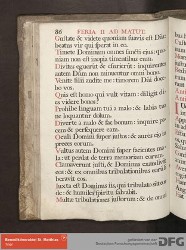 86 FERIA II AD MATUT.
Gustate & videte quoniam suavis est Dñs:
beatus vir qui sperat in eo.
Timete Dominum omnes sancti ejus: quoniam
non est inopia timentibus eum.
Divites eguerunt & esurierunt: inquirentes
autem Dñm non minuentur omni bono.
Venite filii audite me: timorem Dñi docebo
vos.
Quis est homo qui vult vitam: diligit dies
videre bonos?
Prohibe linguam tuã a malo: & labia tua
ne loquantur dolum.
Diverte a malo & fac bonum: inquire pacem
& persequere eam.
Oculi Domini super justos: & aures ejus in
preces eorum.
Vultus autem Domini super facientes mala:
ut perdat de terra memoriam eorum.
Clamaverunt justi, & Dominus exaudivit
eos: & ex omnibus tribulationibus eorum
liberavit eos.
Juxta est Dominus iis, qui tribulato sunt corde:
& humiles spiritu salvabit.
Multæ tribulationes justorum: & de omnibus
DFG